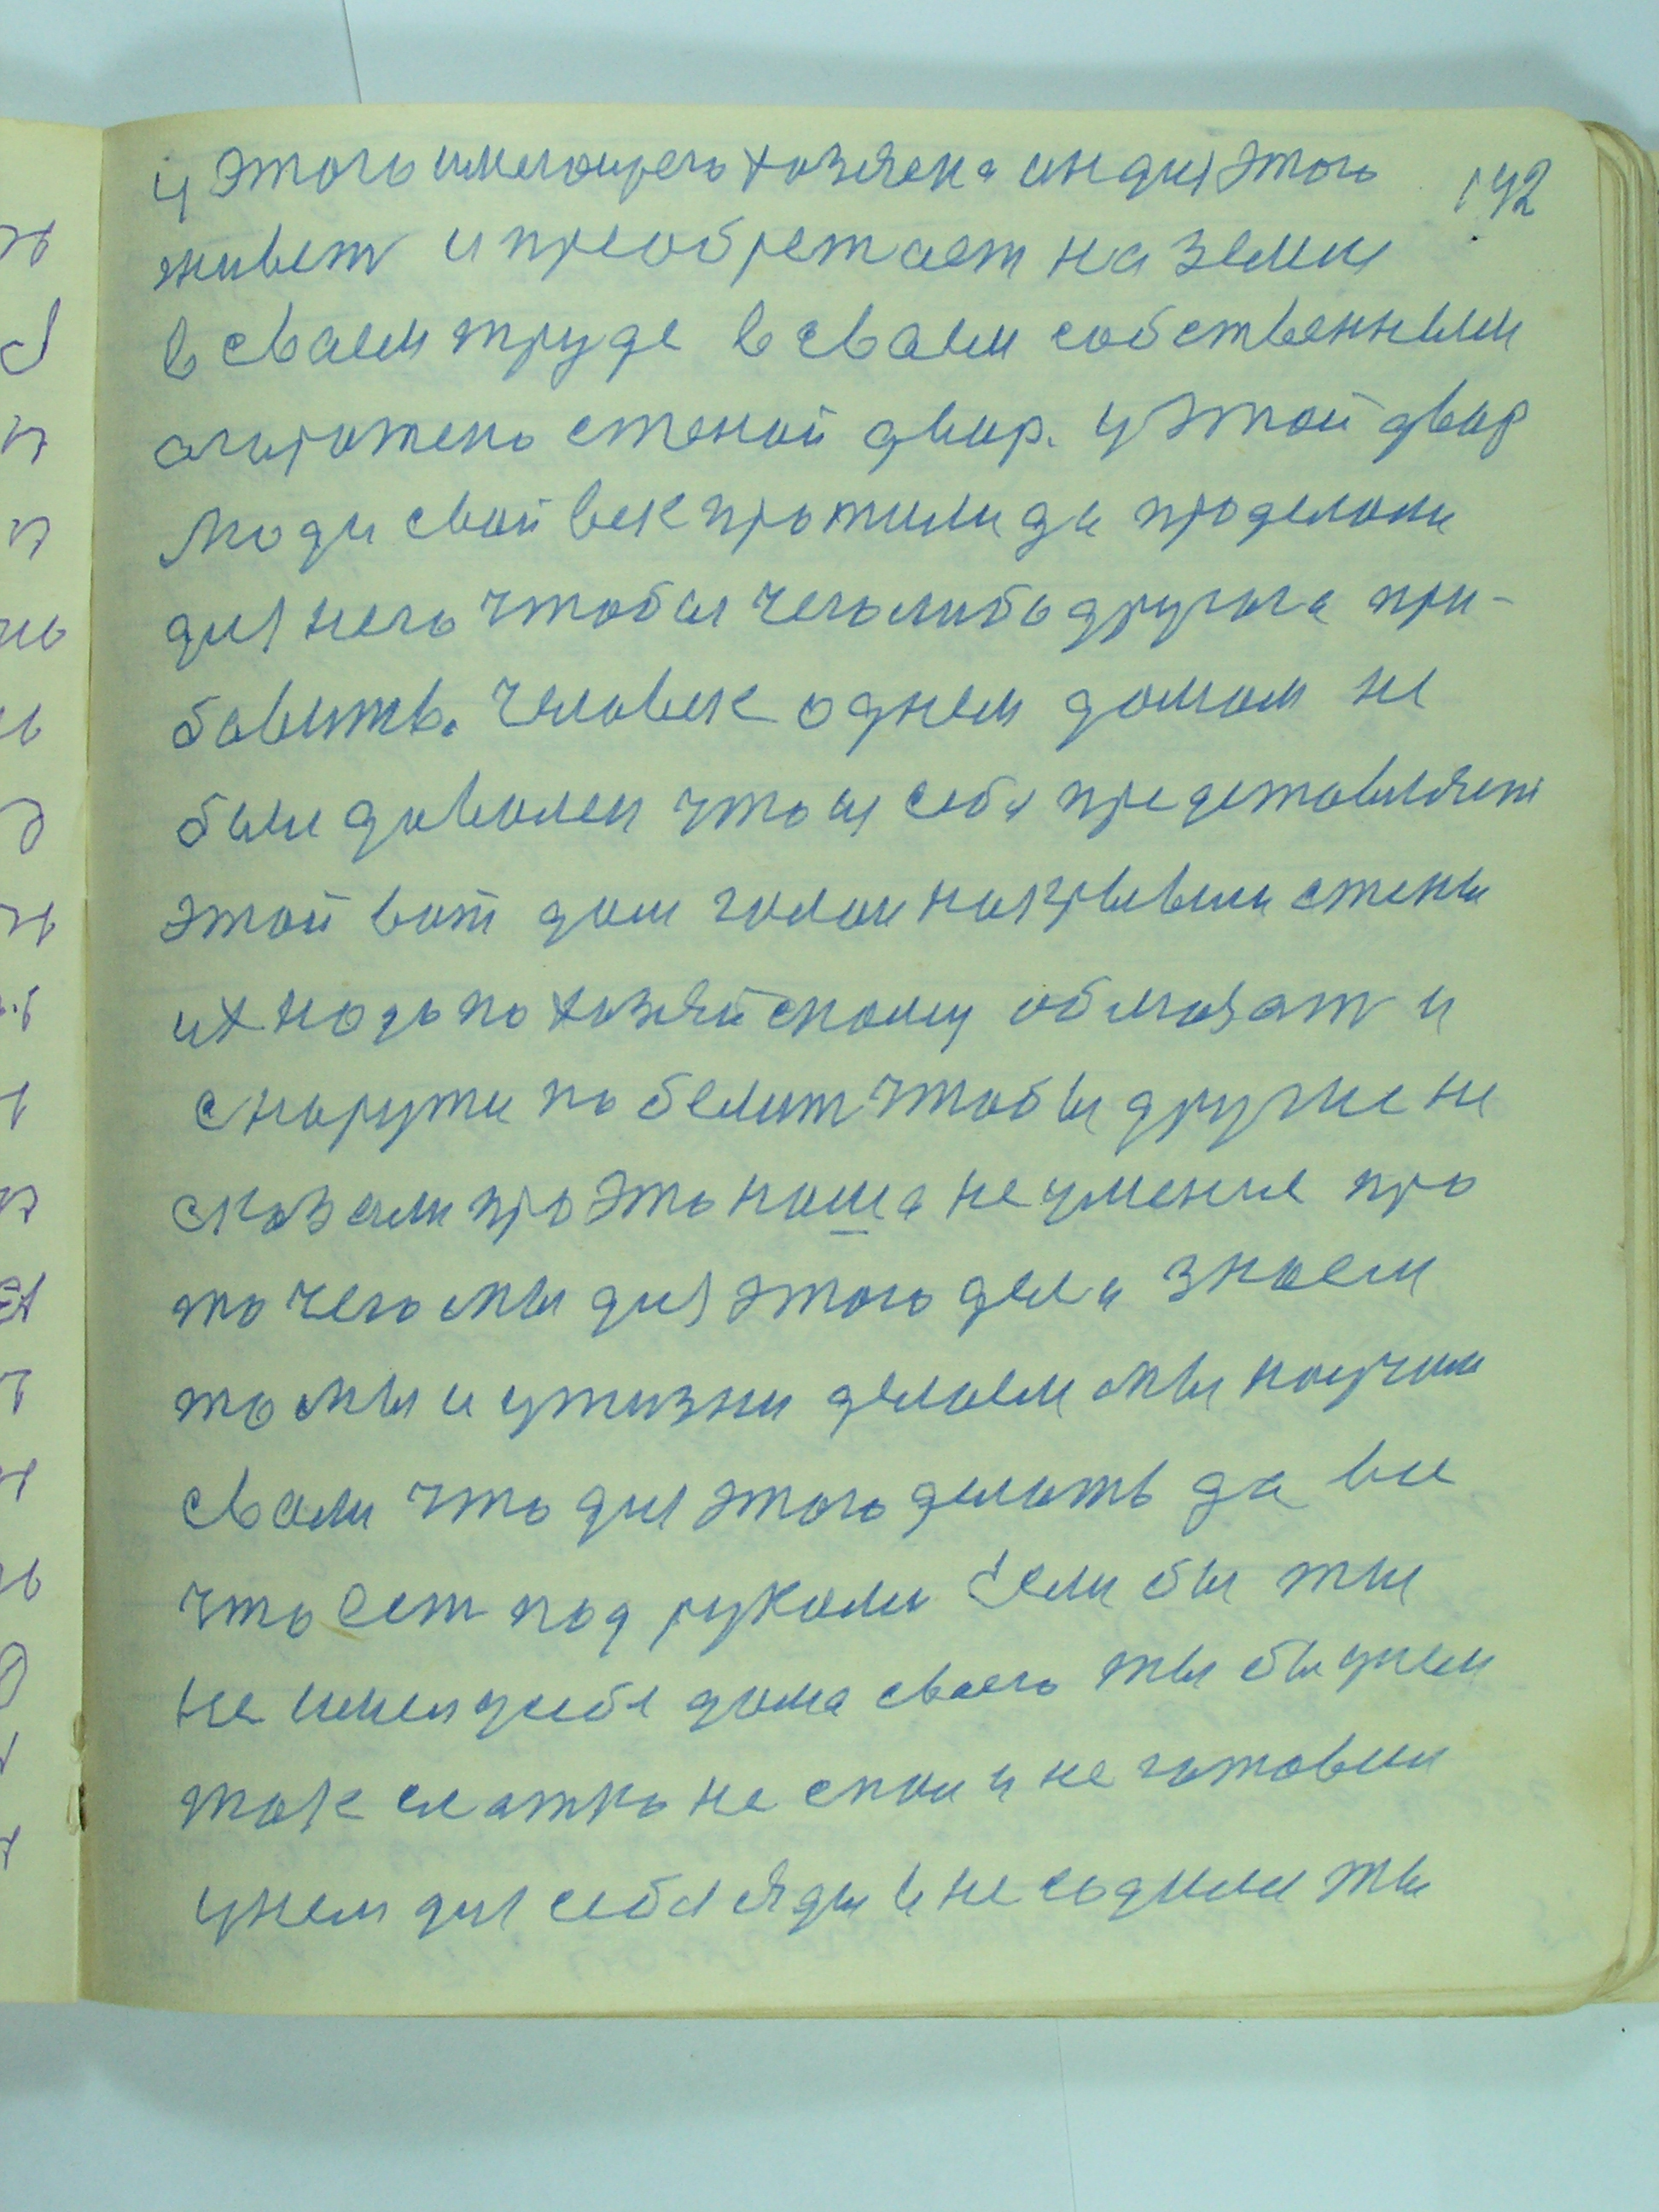 192
у этого имеющего хозяена ин для этого
живет и преобретает на земли
в сваем труде в сваем собственным
агирожено стеной двор. у этой двор
люди свой век прожили да проделали
для него чтобы чеголибо другога при-
бавить. человек однем домом не
был даволен что ш себя представляет
этой вот дом голои накривили стены
их нодо по хозяйскому обмазат и
снаружи побелит чтобы другие не
сказали про это наша не умение про
то чего мы для этого дела знаем
то мы и у жизни делаем мы научим
свами что для этого делать да все
что ест под руками Если бы ты
не имел усебе дома своего ты бы унем
так слатко не спал и не готовил
унем для себя яды и не содилы ты